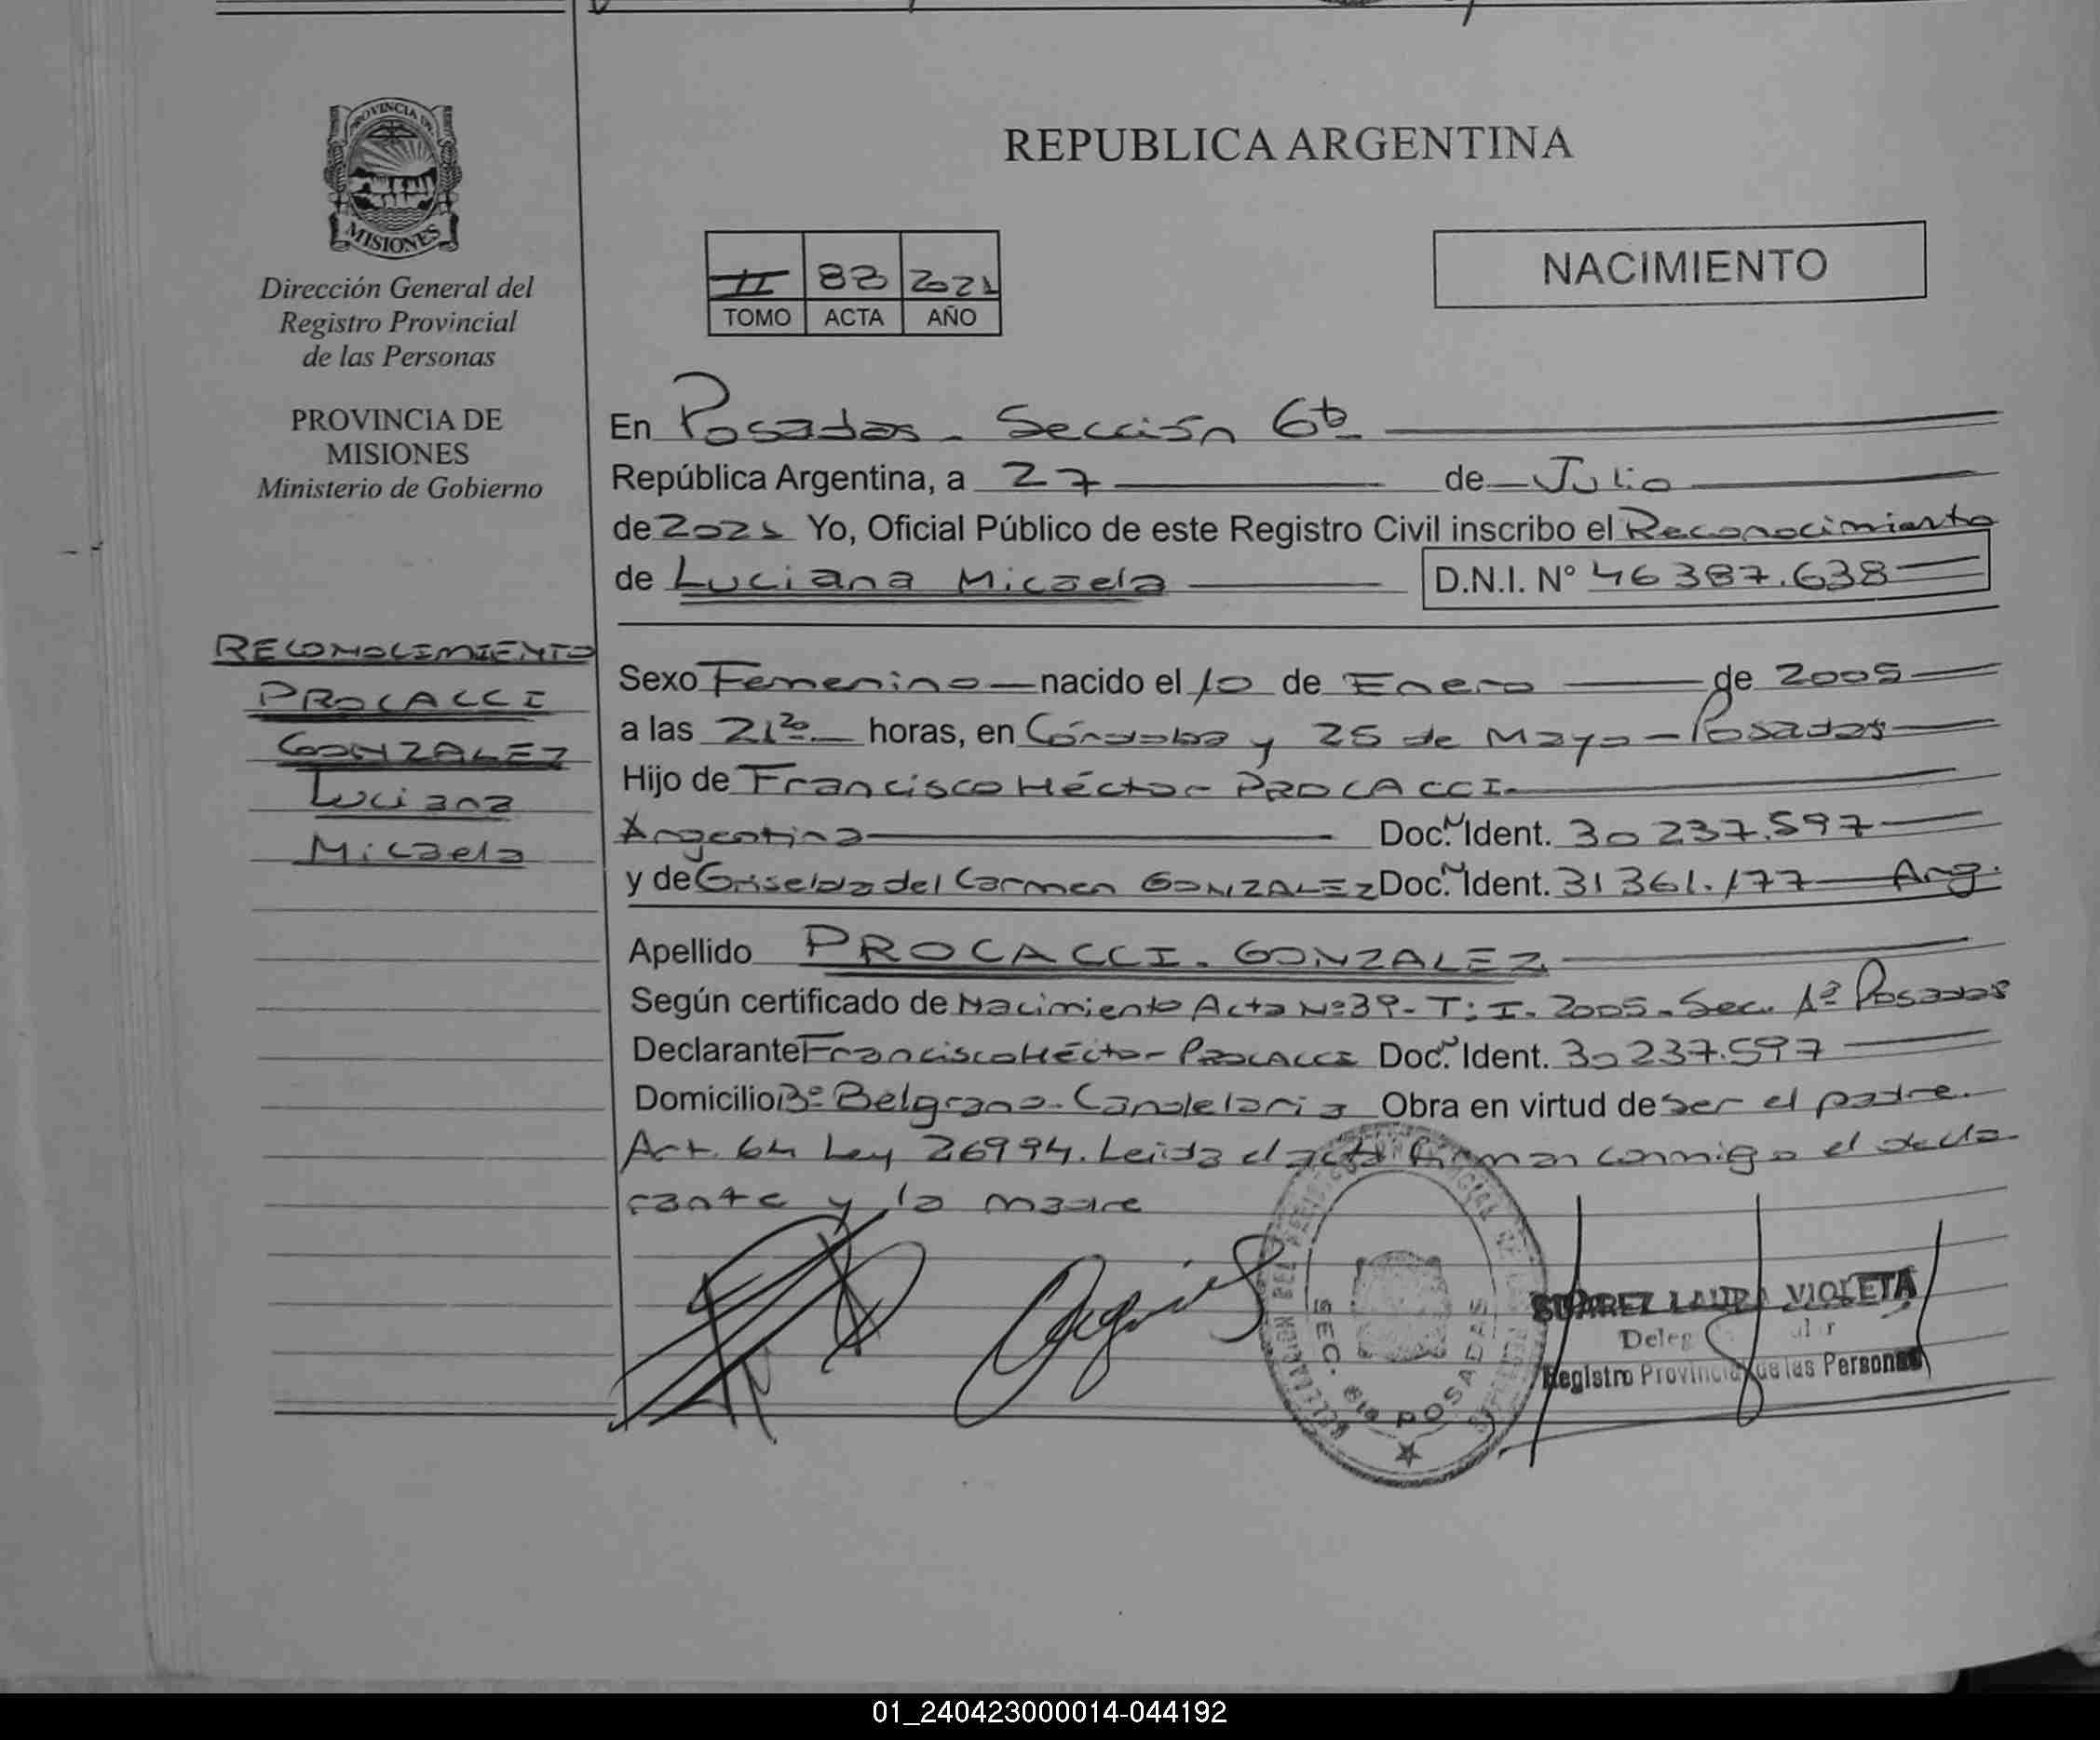 PROVINCIA DE
MISIONES
Dirección General del
Registro Provincial
de las Personas
PROVINCIA DE
MISIONES
Ministerio de Gobierno
RECONOCIMIENTO
PROCACCI
GONZALEZ
Luciana
Micaela
REPUBLICA ARGENTINA
II 88 2021
TOMO ACTA AÑO
NACIMIENTO
En Posadas - Sección 6ta
República Argentina, a 27 de Julio
de 2021 Yo, Oficial Público de este Registro Civil inscribo el Reconocimiento
de Luciana Micaela D.N.I. N° 46387.638
Sexo Femenino nacido el 10 de Enero de 2005
a las 21:20 horas, en Córdoba y 25 de Mayo - Posadas
Hijo de Francisco Héctor PROCACCI
Argentina Doc. Ident. 30237.597
y de Griselda del Carmen GONZALEZ Doc. Ident. 31361.177 Arg.
Apellido PROCACCI - GONZALEZ
Según certificado de Nacimiento Acta Nº39 - T: I - 2005 - Sec. 1ª Posadas
Declarante Francisco Héctor PROCACCI Doc. Ident. 30237.597
Domicilio Bº Belgrano - Candelaria Obra en virtud de ser el padre.
Art. 64 Ley 26994. Leida el acta firman conmigo el decla
rante y la madre
SEC. 6ta POSADAS
SUAREZ LAURA VIOLETA
Registro Provincial de las Personas
01_240423000014-044192